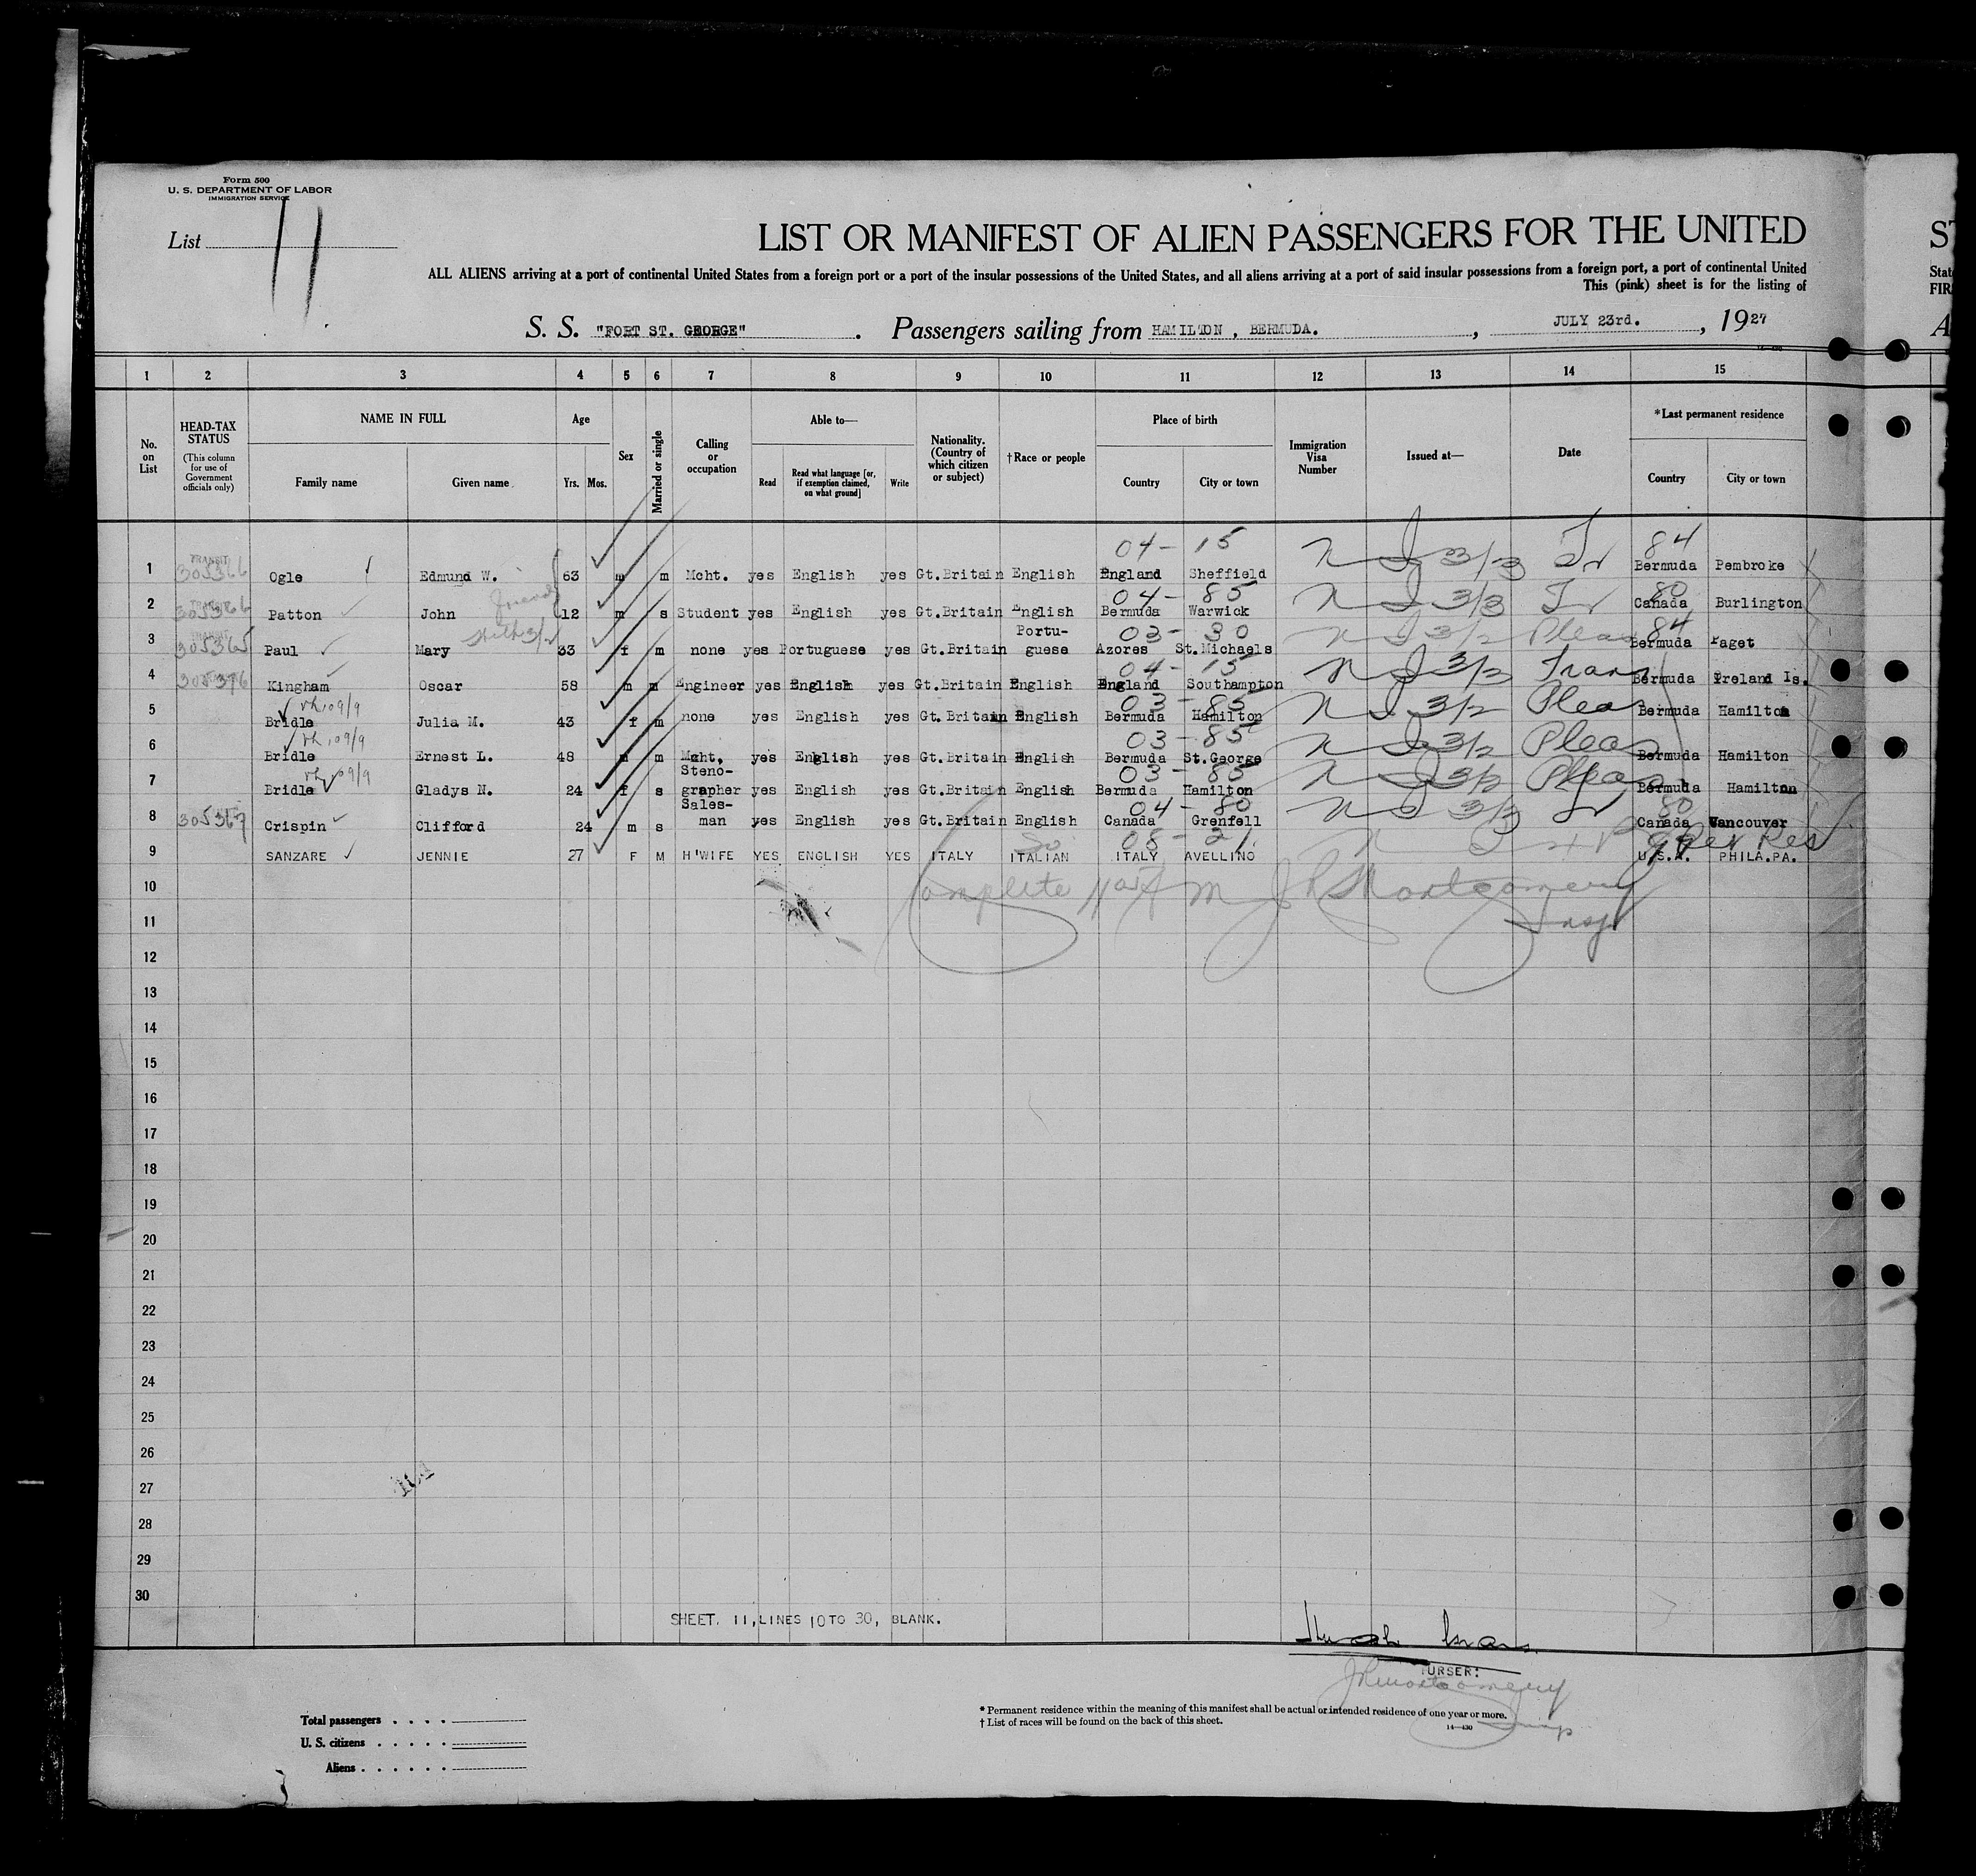 Form 500
U. S. DEPARTMENT OF LABOR
IMMIGRATION SERVICE
List 11
LIST OR MANIFEST OF ALIEN PASSENGERS FOR THE UNITED
ST
ALL ALIENS arriving at a port of continental United States from a foreign port or a port of the insular possessions of the United States, and all aliens arriving at a port of said insular possessions from a foreign port, a port of continental United
This (pink) sheet is for the listing of
S. S. "FORT ST. GEORGE". Passengers sailing from HAMILTON, BERMUDA., JULY 23rd., 1927
1 2 3 4 5 6 7 8 9 10 11 12 13 14 15
No. on List
HEAD-TAX STATUS (This column for use of Government officials only)
NAME IN FULL Family name Given name
Age Yrs. Mos.
Sex
Married or single
Calling or occupation
Able to— Read Read what language [or, if exemption claimed, on what ground] Write
Nationality. (Country of which citizen or subject)
†Race or people
Place of birth Country City or town
Immigration Visa Number
Issued at—
Date
*Last permanent residence Country City or town
04-15 84
1 TRANSIT 305366 Ogle Edmund W. 63 m m Mcht. yes English yes Gt.Britain English England Sheffield 3/3 Tr Bermuda Pembroke
04-85 80
2 305366 Patton John 12 m s Student yes English yes Gt.Britain English Bermuda Warwick 3/3 Tr Canada Burlington
03-30 84
3 305365 Paul Mary 33 f m none yes Portuguese yes Gt.Britain Portu-guese Azores St.Michaels 3/2 Pleas Bermuda Paget
04-15
4 305376 Kingham Oscar 58 m m Engineer yes English yes Gt.Britain English England Southampton 3/2 Tran Bermuda Ireland Is.
03-85
5 Bridle Julia M. 43 f m none yes English yes Gt.Britain English Bermuda Hamilton 3/2 Pleas Bermuda Hamilton
03-85
6 Bridle Ernest L. 48 m m Mcht. yes English yes Gt.Britain English Bermuda St.George 3/2 Pleas Bermuda Hamilton
03-85
7 Bridle Gladys N. 24 f s Steno-grapher yes English yes Gt.Britain English Bermuda Hamilton 3/2 Pleas Bermuda Hamilton
04-80 80
8 305367 Crispin Clifford 24 m s Sales-man yes English yes Gt.Britain English Canada Grenfell 3/3 Tr Canada Vancouver
08-21
9 SANZARE JENNIE 27 F M H'WIFE YES ENGLISH YES ITALY ITALIAN ITALY AVELLINO U.S.A. PHILA.PA.
10
Complete J R Montgomery
Insp
11
12
13
14
15
16
17
18
19
20
21
22
23
24
25
26
27
28
29
30
SHEET. 11,LINES 10 TO 30, BLANK.
PURSER:
J R Montgomery
Insp
Total passengers
U. S. citizens
Aliens
* Permanent residence within the meaning of this manifest shall be actual or intended residence of one year or more.
† List of races will be found on the back of this sheet.
14—430